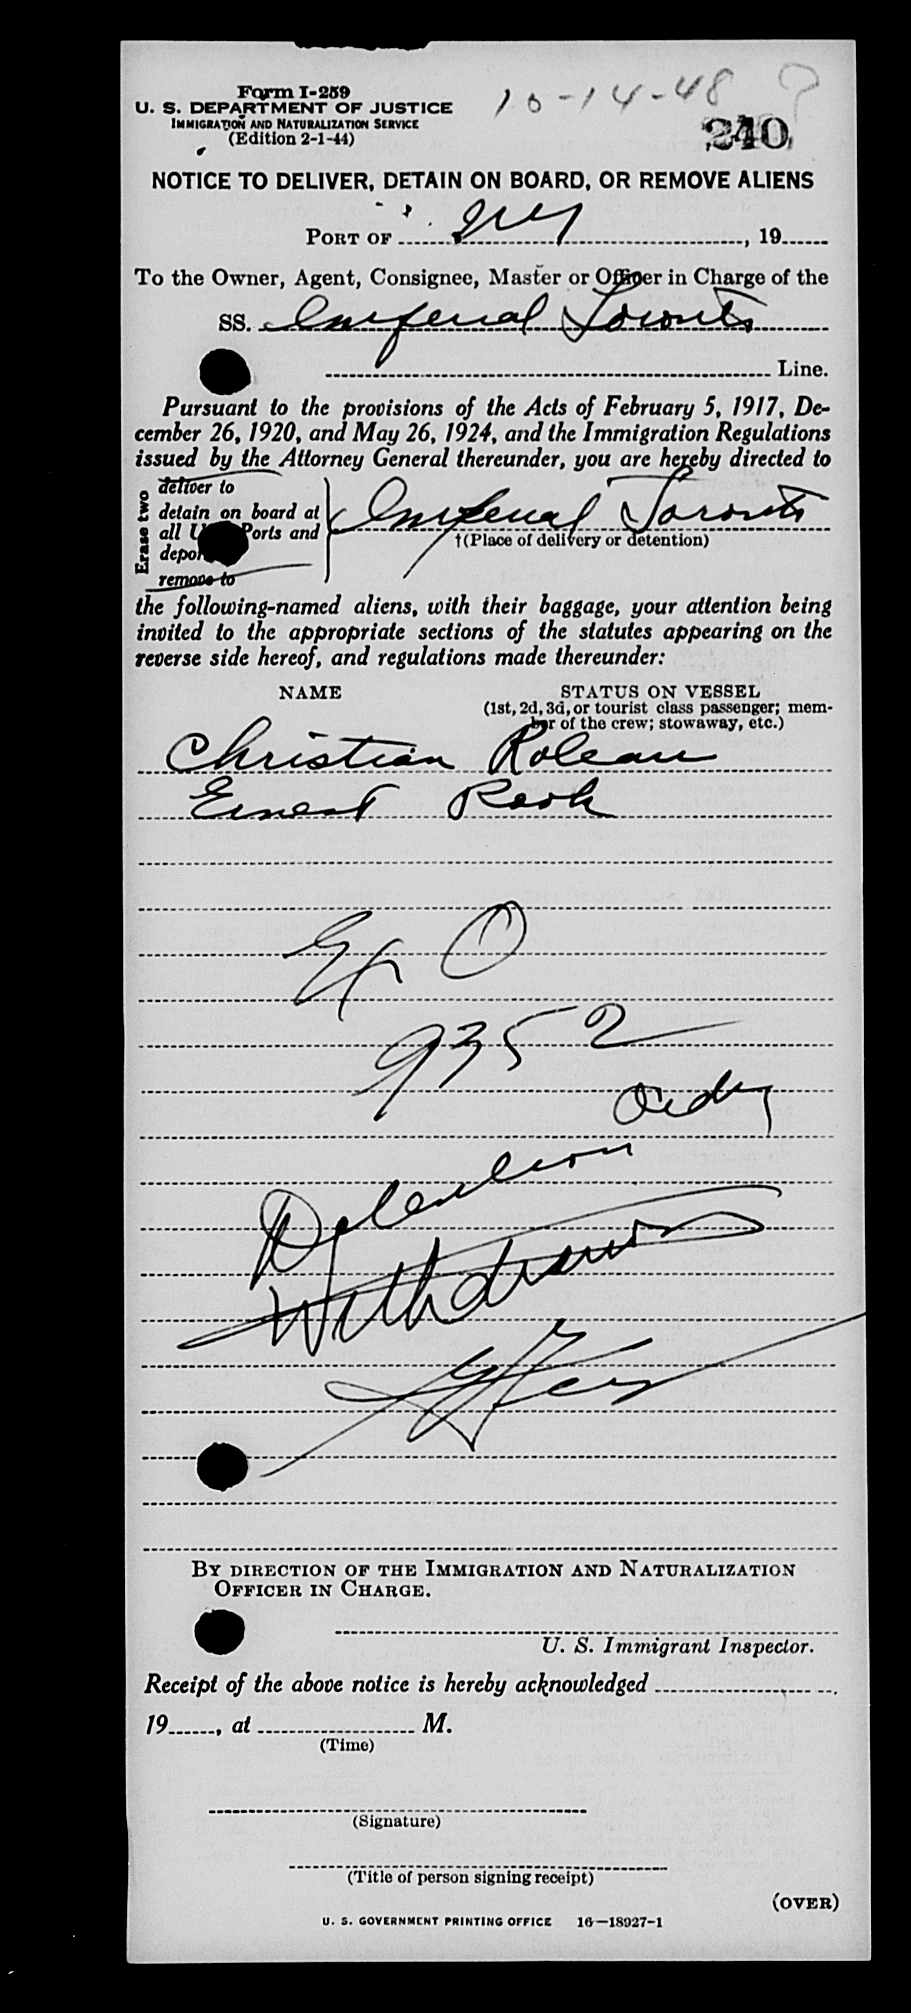 Form I-259
U. S. DEPARTMENT OF JUSTICE
IMMIGRATION AND NATURALIZATION SERVICE
(Edition 2-1-44)
10-14-48 ?
240
NOTICE TO DELIVER, DETAIN ON BOARD, OR REMOVE ALIENS
PORT OF NY, 19
To the Owner, Agent, Consignee, Master or Officer in Charge of the
SS. Imperial Toronto
Line.
Pursuant to the provisions of the Acts of February 5, 1917, De-
cember 26, 1920, and May 26, 1924, and the Immigration Regulations
issued by the Attorney General thereunder, you are hereby directed to
Erase two
deliver to
detain on board at
all U. Ports and
depor
remove to
Imperial Toronto
†(Place of delivery or detention)
the following-named aliens, with their baggage, your attention being
invited to the appropriate sections of the statutes appearing on the
reverse side hereof, and regulations made thereunder:
NAME STATUS ON VESSEL
(1st, 2d, 3d, or tourist class passenger; mem-
ber of the crew; stowaway, etc.)
Christian Roleau
Ernest
Ex O
9352
Order
Detention
Withdrawn
BY DIRECTION OF THE IMMIGRATION AND NATURALIZATION
OFFICER IN CHARGE.
U. S. Immigrant Inspector.
Receipt of the above notice is hereby acknowledged
19, at M.
(Time)
(Signature)
(Title of person signing receipt)
(OVER)
U. S. GOVERNMENT PRINTING OFFICE 16—18927-1